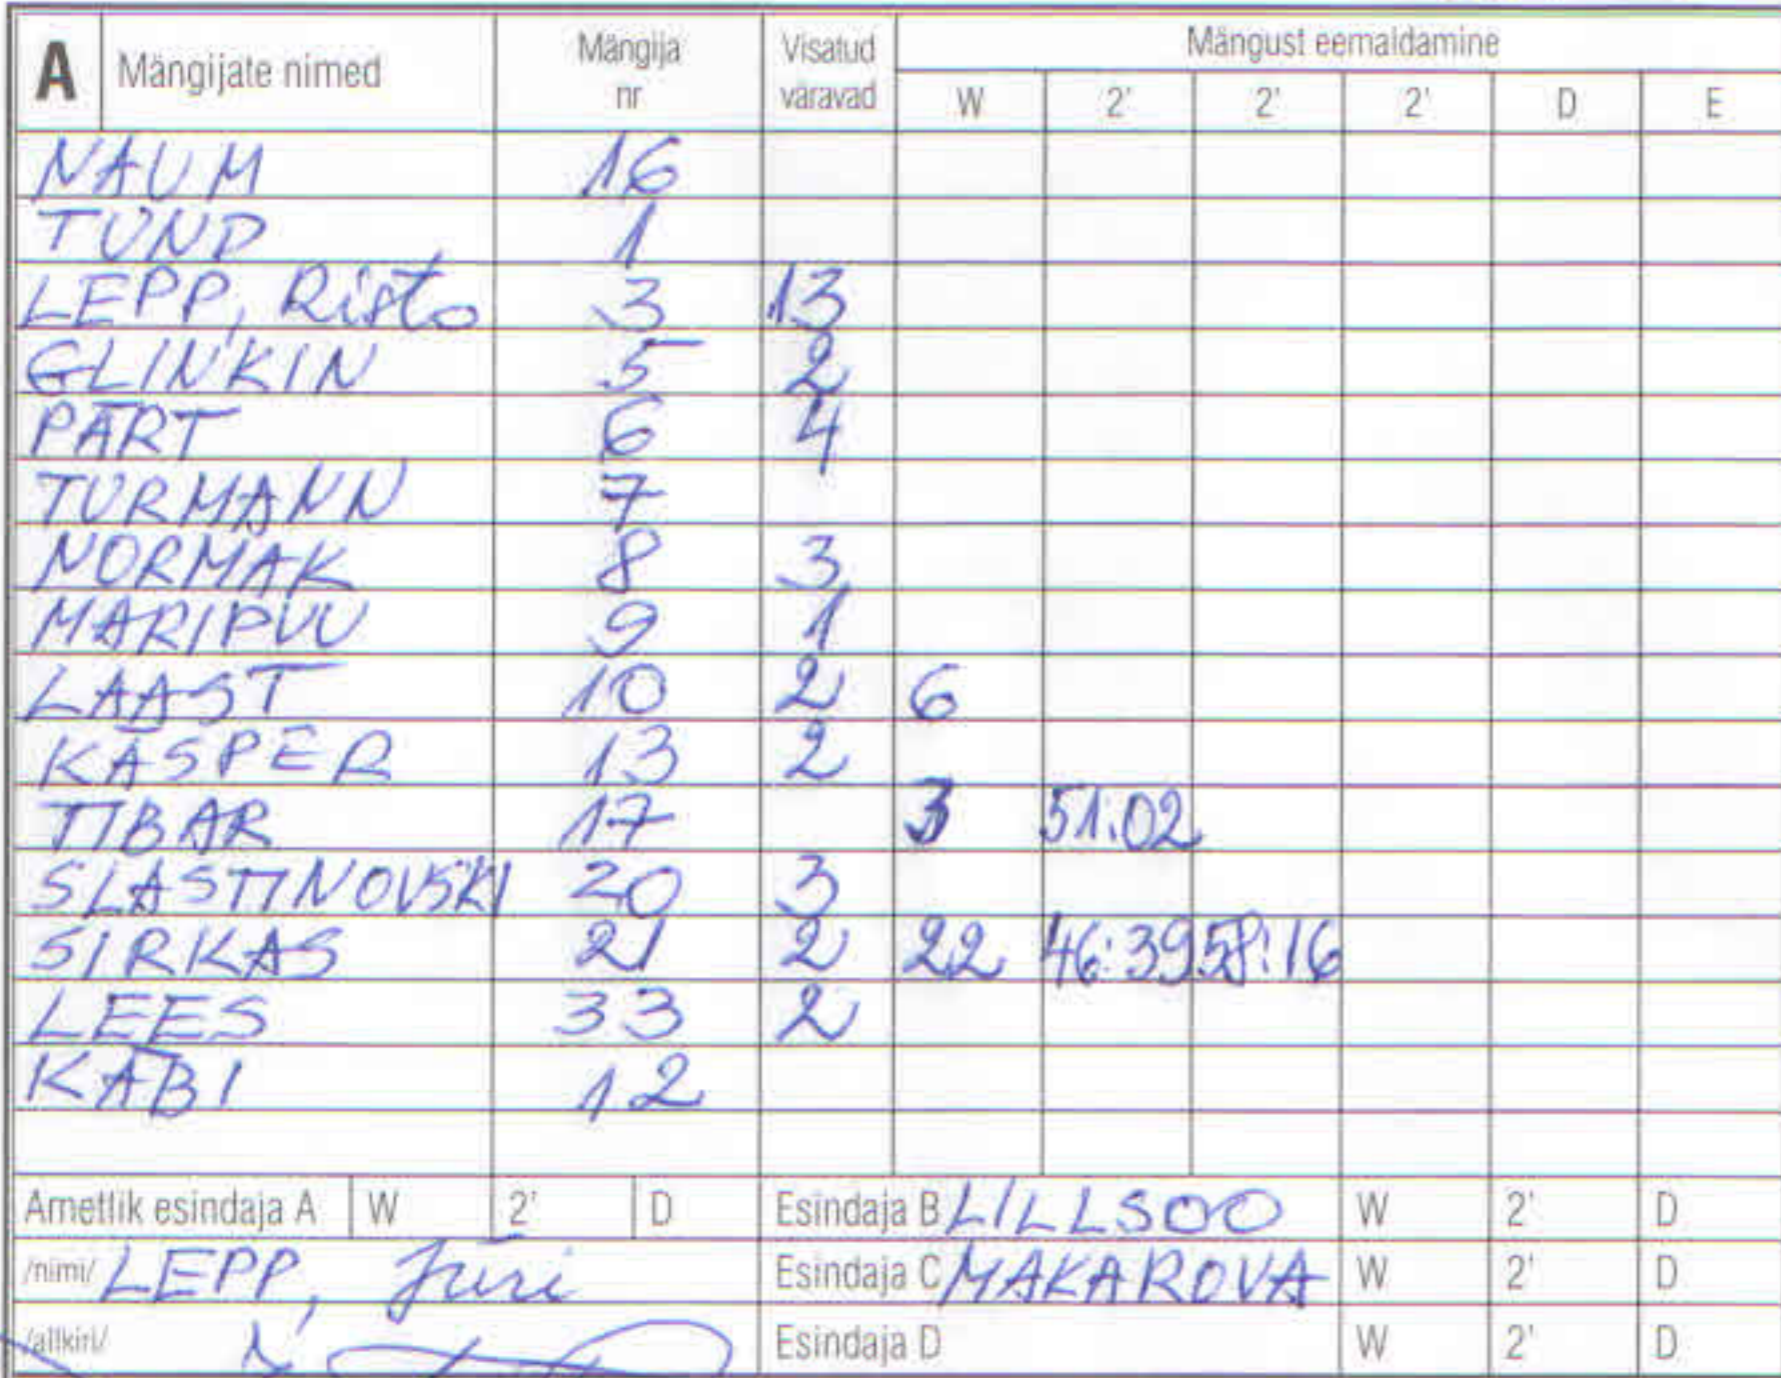 A Mängijate nimed Mängija nr Visatud väravad Mängust eemaldamine
W 2' 2' 2' D E
NAUM 16
TÜND 1
LEPP, Risto 3 13
GLINKIN 5 2
PÄRT 6 4
TURMANN 7
NORMAK 8 3
MARIPUU 9 1
LAAST 10 2 6
KÄSPER 13 2
TIBAR 17 3 51:02
SLASTINOVSKI 20 3
SIRKAS 21 2 22 46:39 58:16
LEES 33 2
KÄBI 12
Ametlik esindaja A W 2' D Esindaja B LILLSOO W 2' D
/nimi/ LEPP, Jüri Esindaja C MAKAROVA W 2' D
/allkiri/ Esindaja D W 2' D